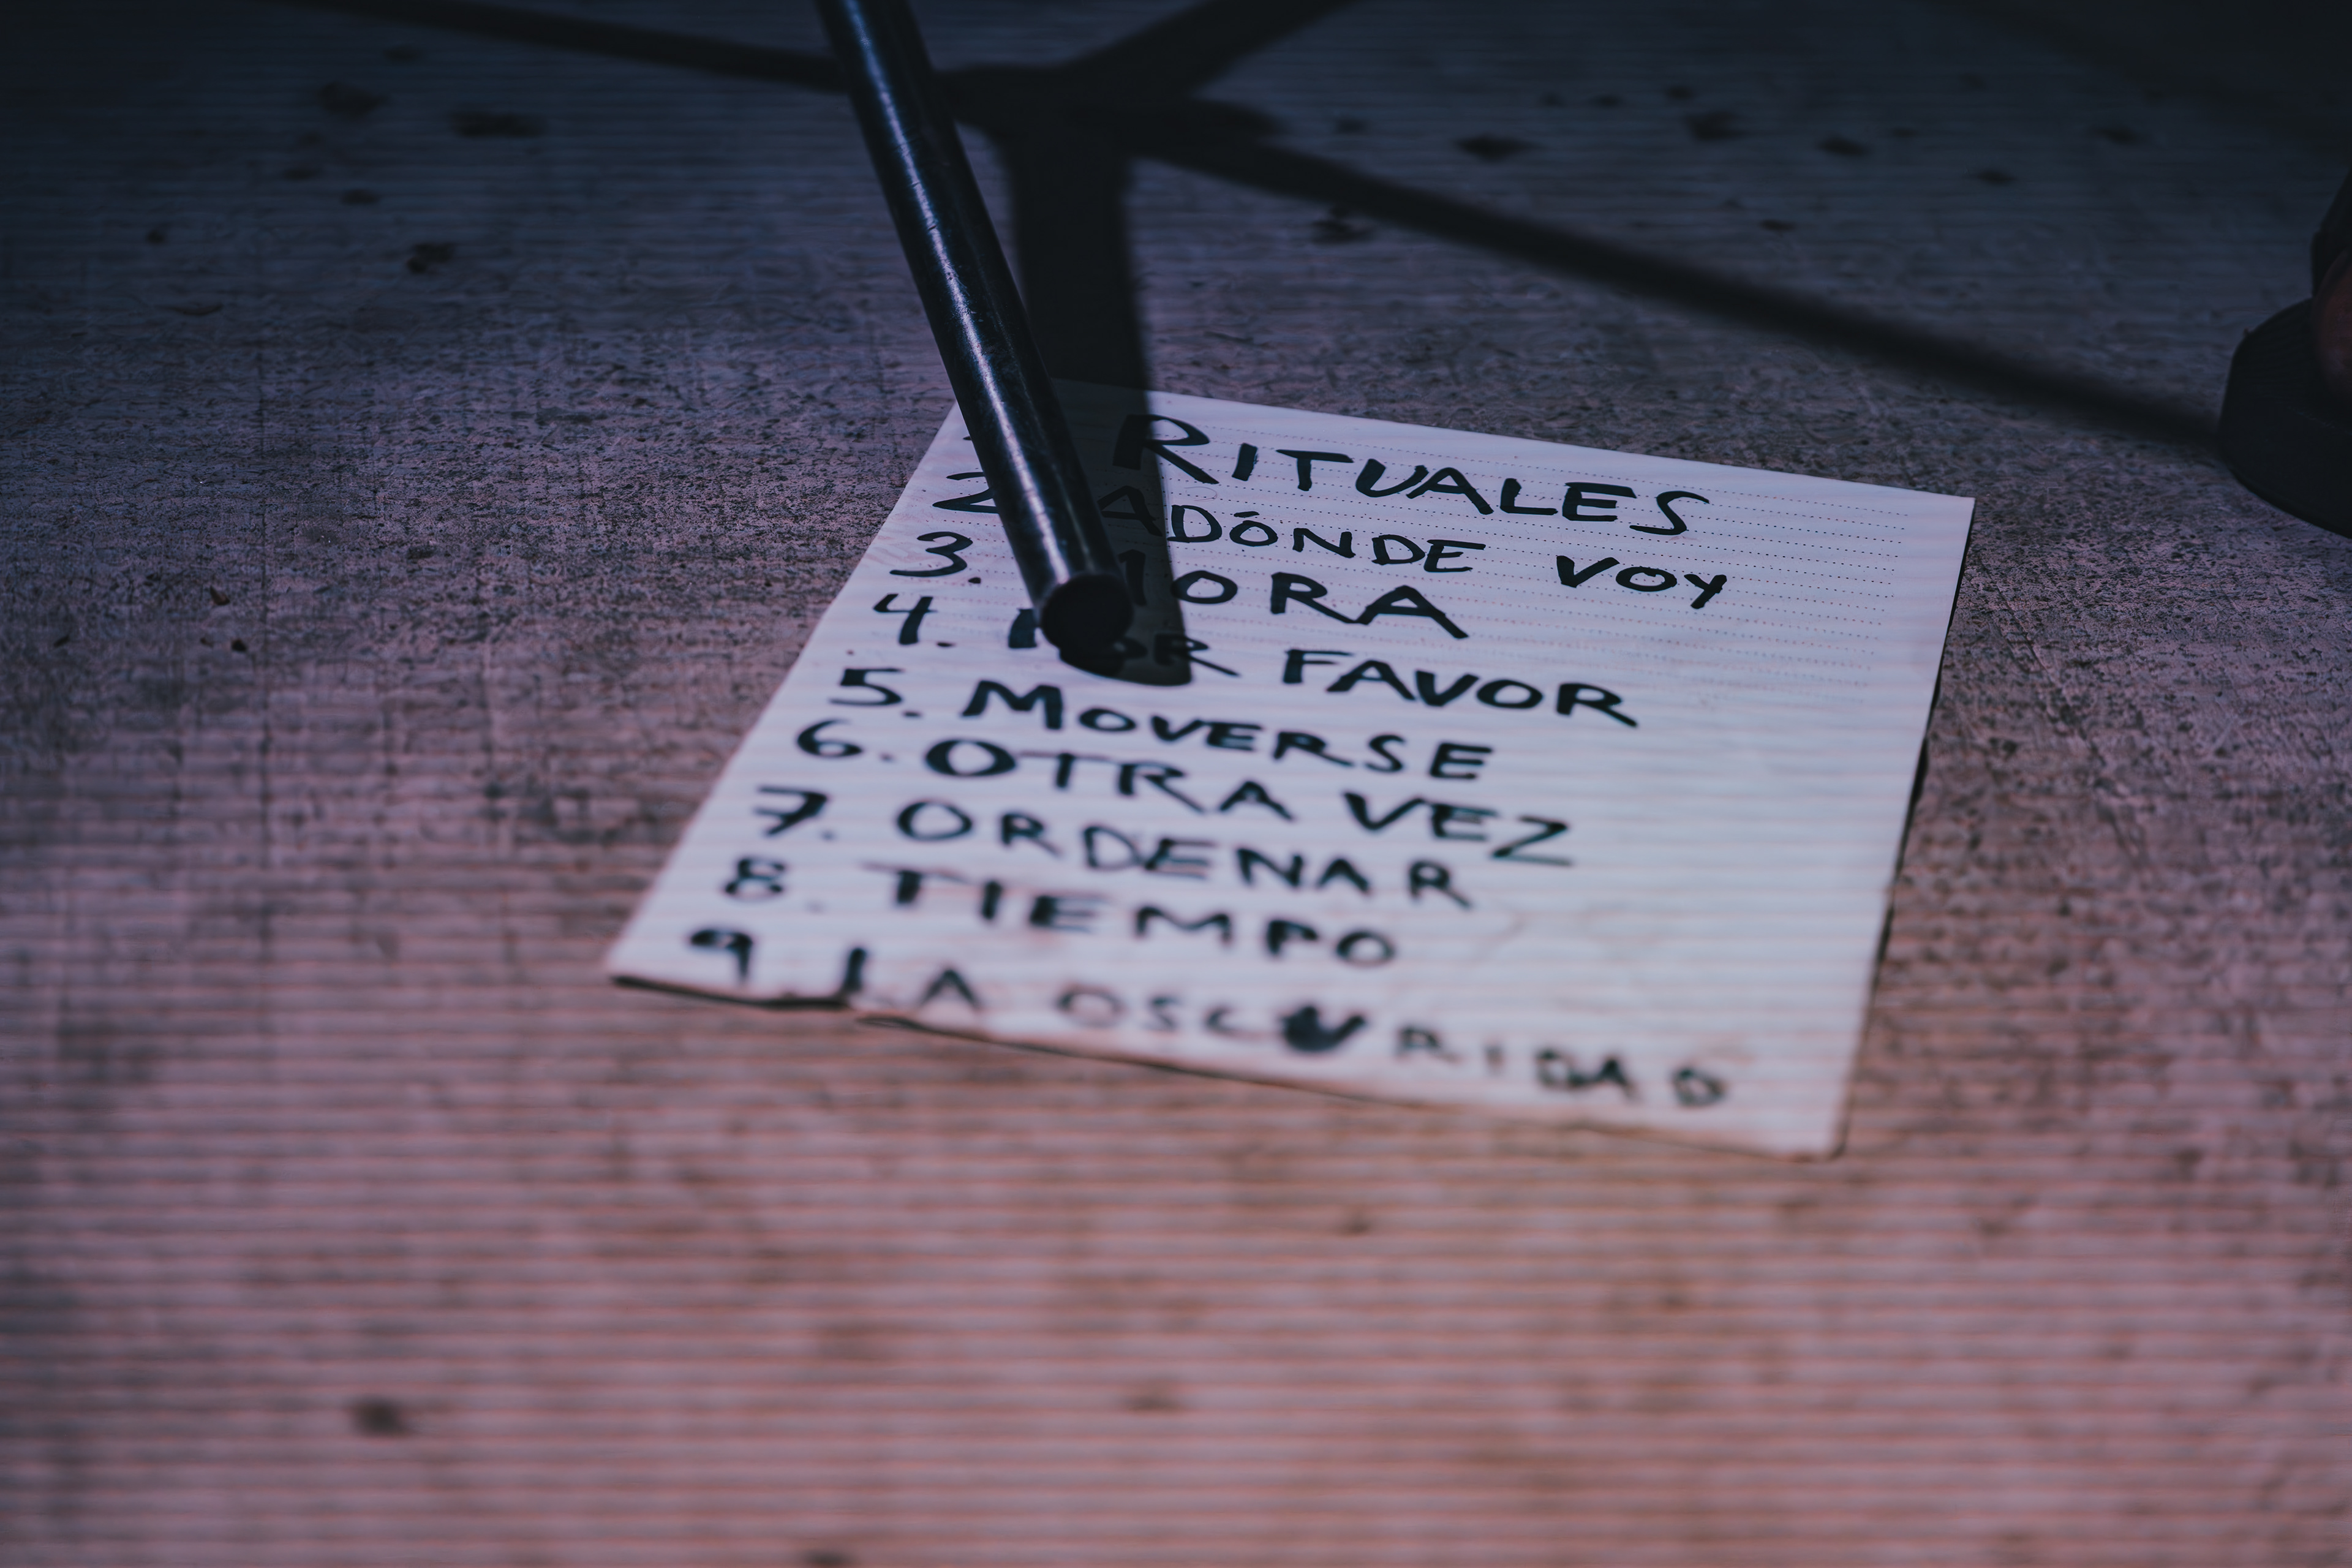 RITUALES
2 ADÓNDE VOY
3.
4. POR FAVOR
5. MOVERSE
6. OTRA VEZ
7. ORDENAR
8. TIEMPO
9. LA OSCURIDAD